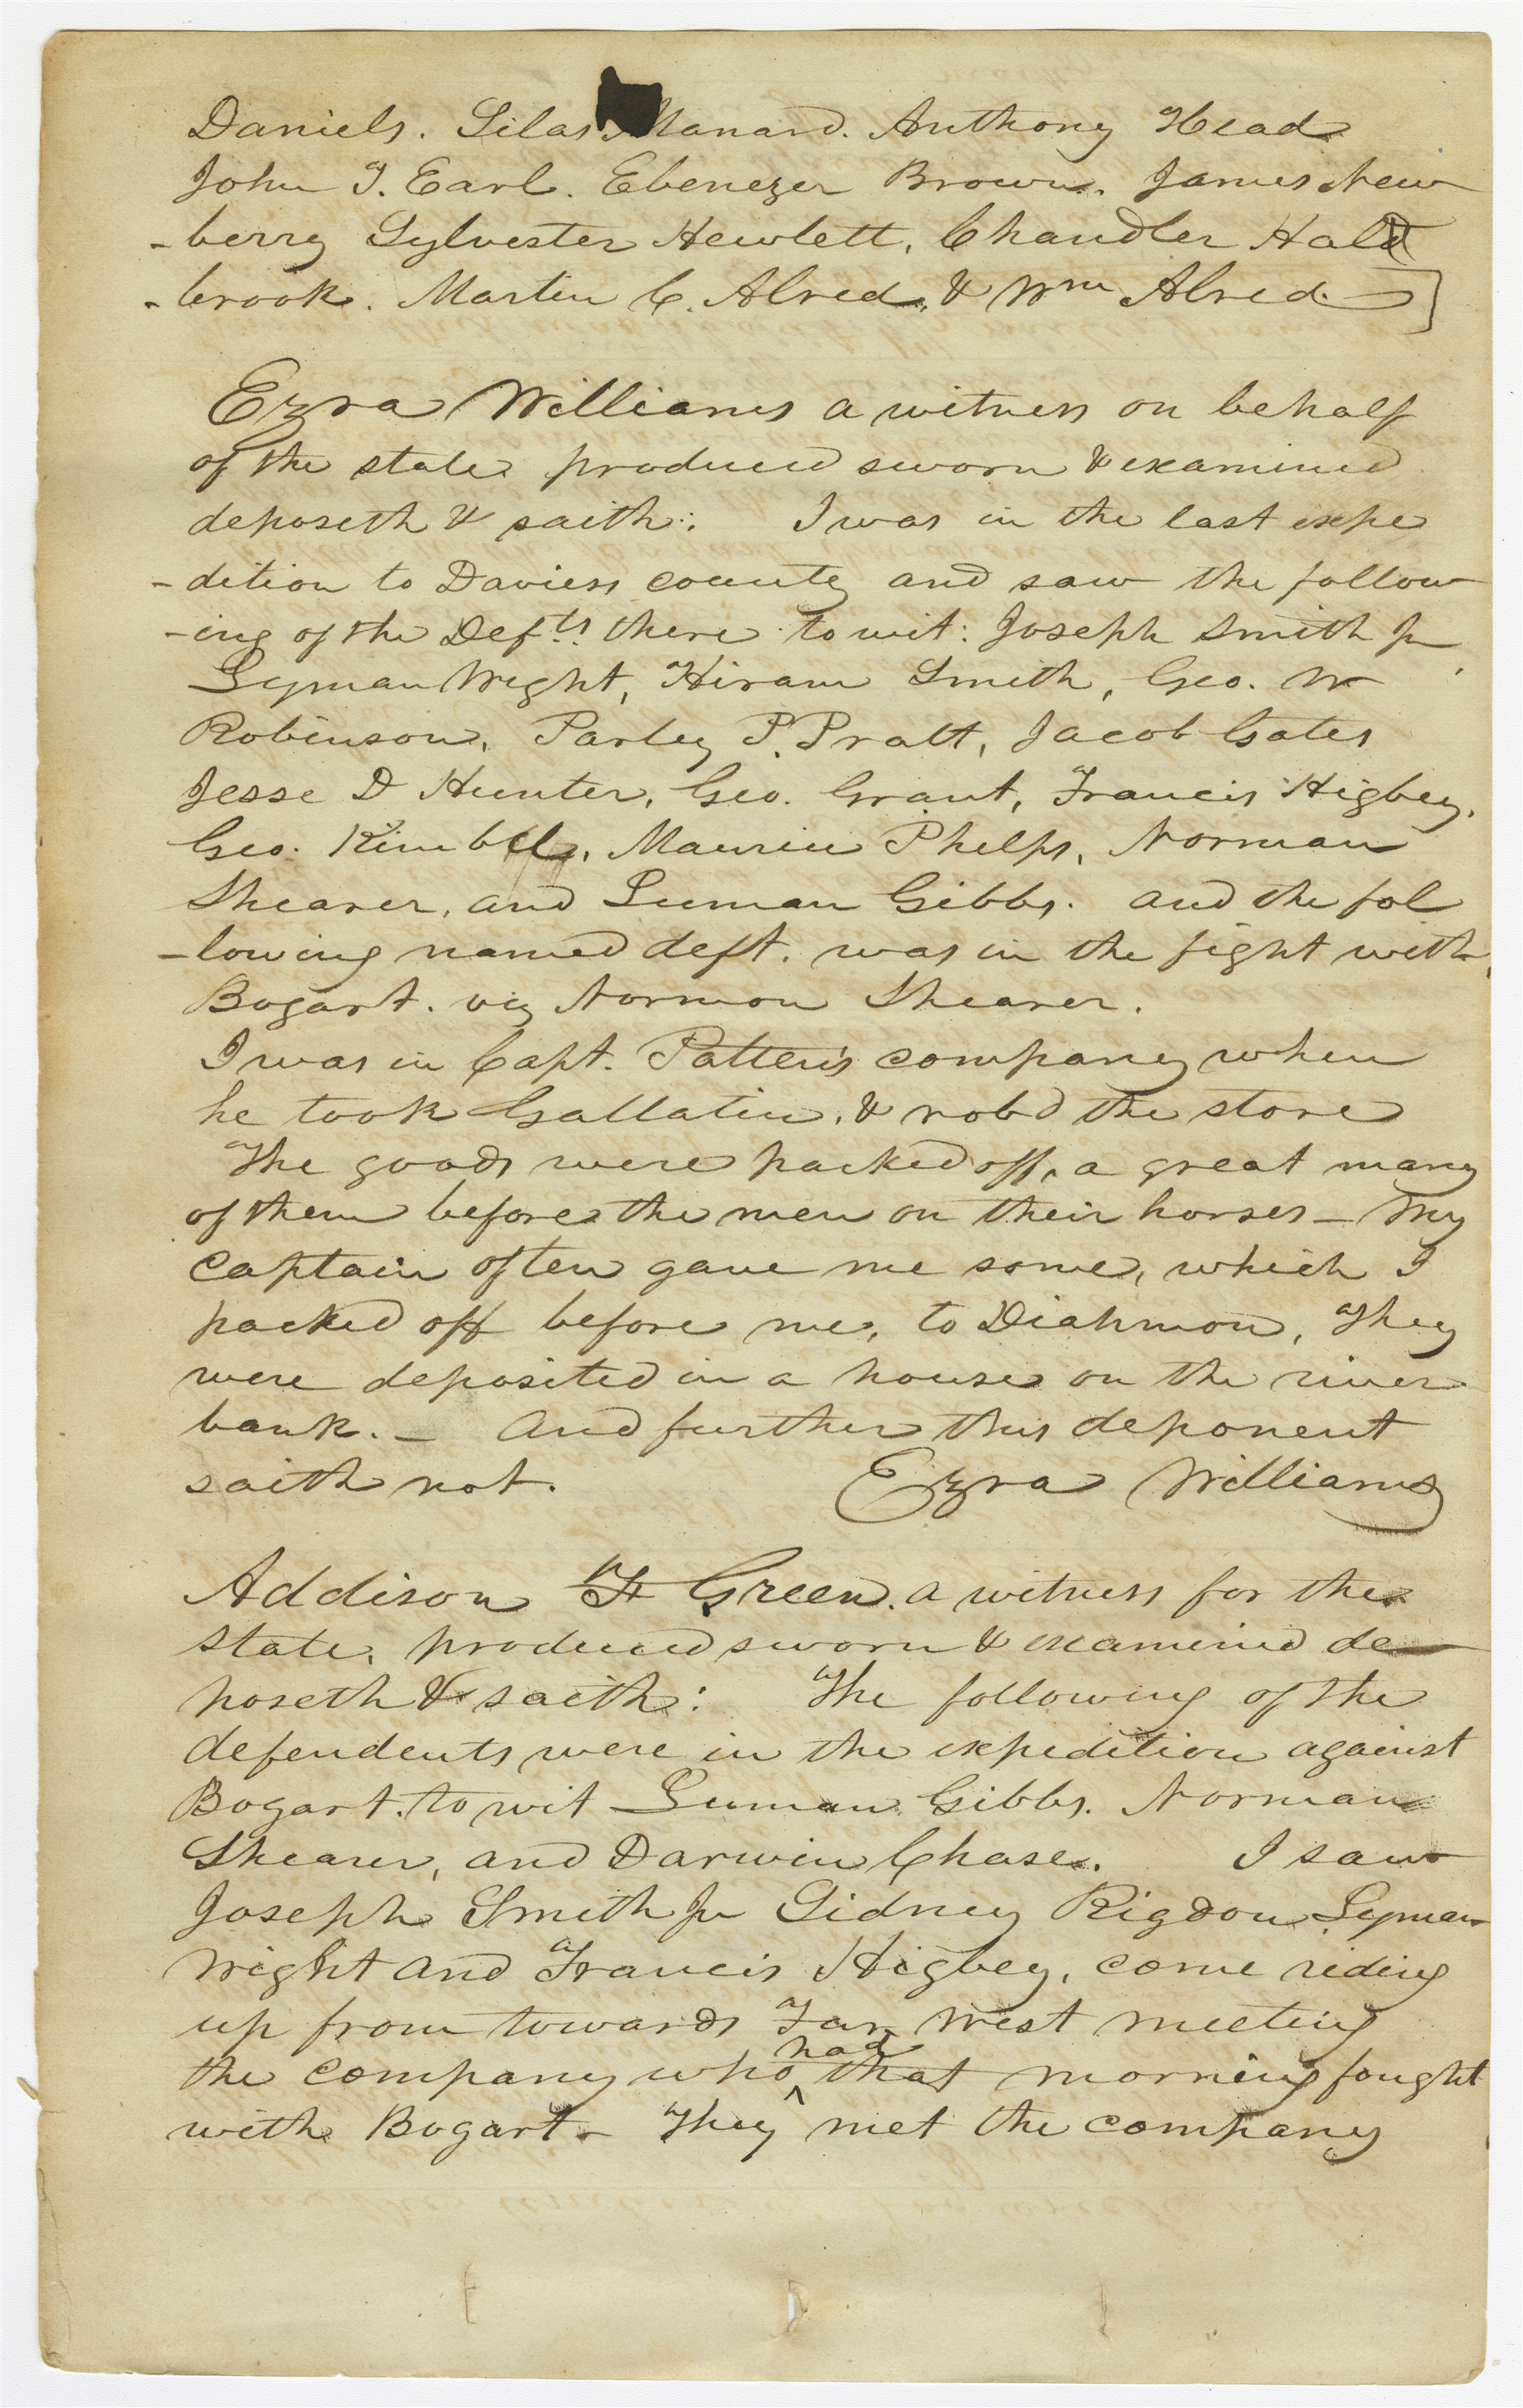 Daniels. Silas Manard. Anthony Head
John T. Earl. Ebenezer Brown. James New
-berry Sylvester Hewlett, Chandler Hald
-brook. Martin C. Alred, & Wm Alred.]
Ezra Williams a witness on behalf
of the state produced sworn & examined
deposeth & saith: I was in the last expe
-dition to Daviess county and saw the follow
-ing of the Defts. there to wit: Joseph Smith Jr,
Lyman Wright, Hiram Smith, Geo. W
Robinson, Parley P. Pratt, Jacob Gates
Jesse D Hunter, Geo. Grant, Francis Higbey,
Geo. Kimble, Maurice Phelps, Norman
Shearer, and Luman Gibbs. and the fol
-lowing named deft. was in the fight with
Bogart. viz Normon Shearer.
I was in Capt. Patten's company when
he took Gallatin, & rob'd the store
The goods were packed off, a great many
of them before the men on their horses - My
captain often gave me some, which I
packed off before me, to Diahmon, They
were deposited in a house on the river
bank. - And further this deponent
saith not. Ezra Williams
Addison F Green. a witness for the
state, produced sworn & examined de
poseth & saith: The following of the
defendents were in the expedition against
Bogart. to wit Luman Gibbs. Norman
Shearer, and Darwin Chase. I saw
Joseph Smith Jr Sidney Rigdon Lyman
Wright and Francis Higbey, come riding
up from towards Far West meeting
the company who ^had that morning fought
with Bogart - They met the company